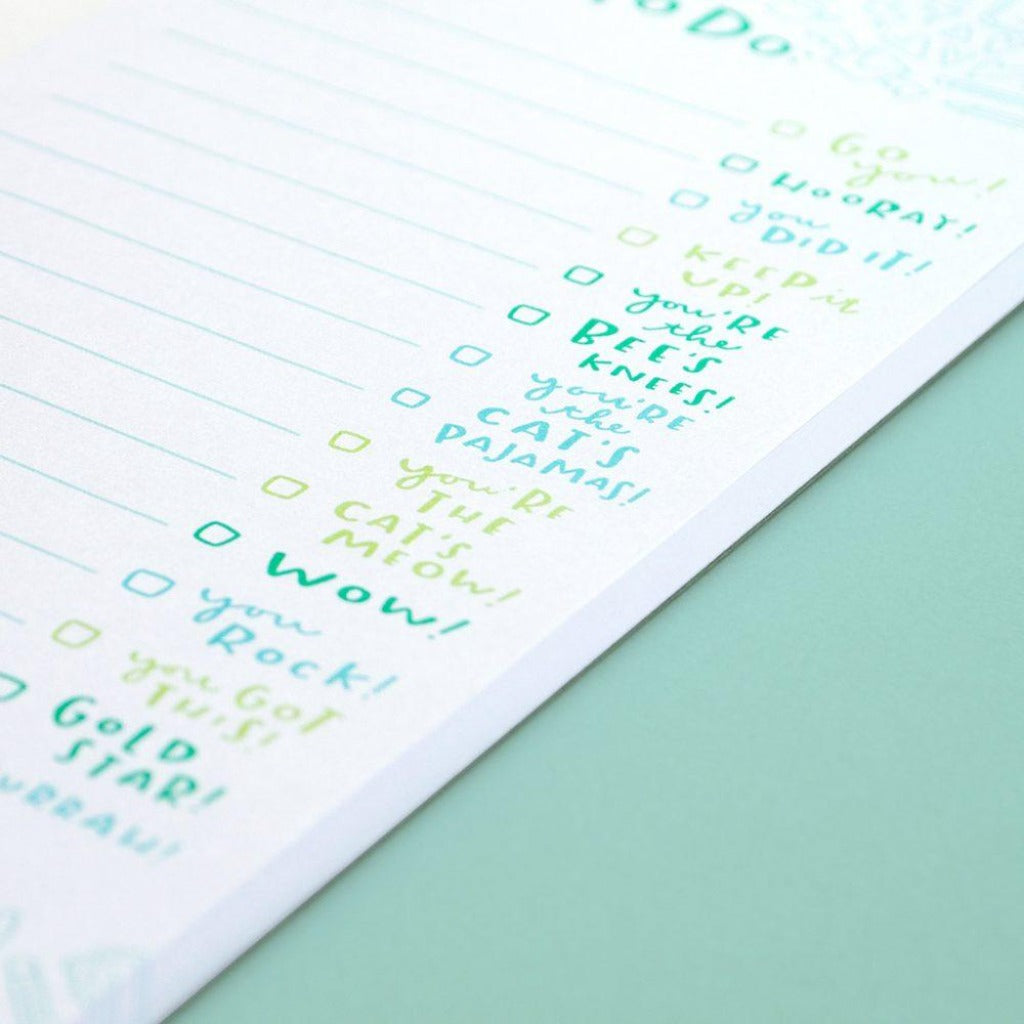 To Do.
Go
you!
HOORAY!
you
DID IT!
KEEP it
UP!
you'RE
the
BEE'S
KNEES!
you'RE
the
CAT'S
PAJAMAS!
you'RE
THE
CAT'S
MEOW!
WOW!
you
ROCK!
you GOT
THIS!
GOLD
STAR!